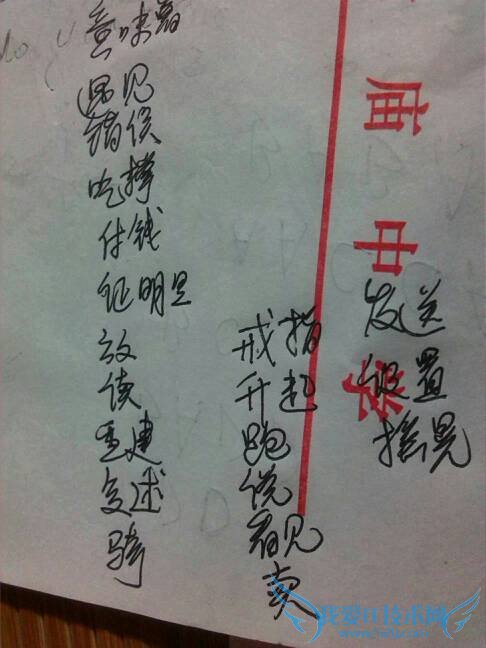 意味着
遇见
吃撑
付钱
证明是
放
读
重建
复述
骑
戒指
升起
跑
说
看见
卖
发送
设置
摇晃
庙中学
我爱IT技术网